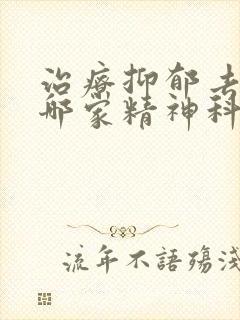 治療抑郁去
哪家精神科
流年不語殤淺